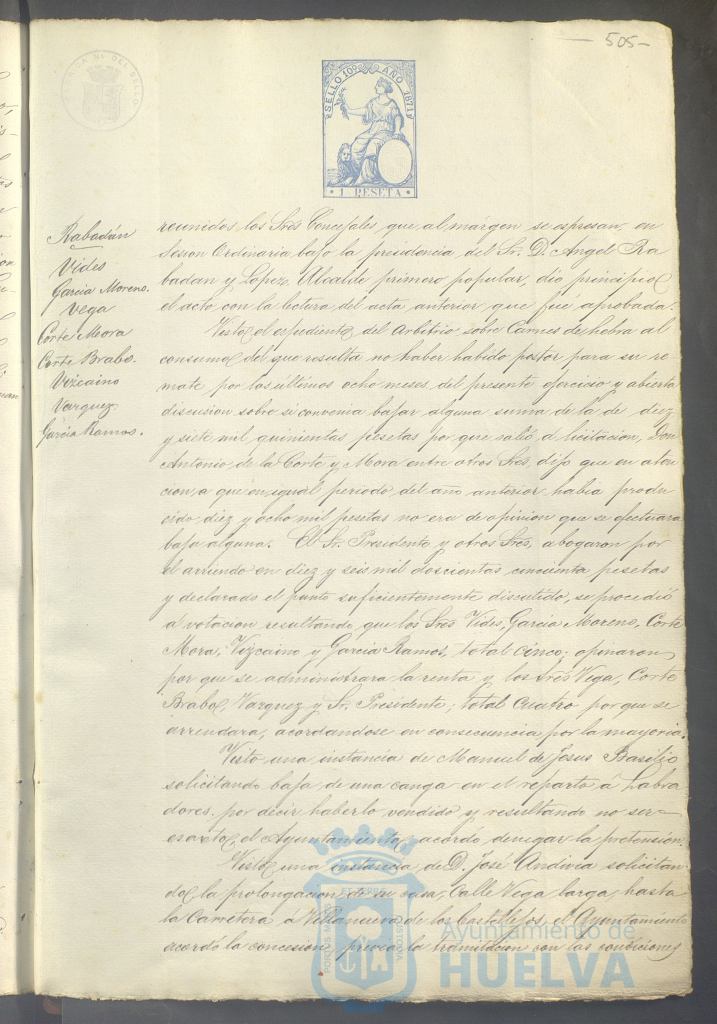 505-
FABRICA NL DEL SELLO
SELLO 10º AÑO 1871
1 PESETA
Rabadán
Vides
Garcia Moreno.
Vega
Corte Mora
Corte Brabo.
Vizcaino
Vazquez
Garcia Ramos.
reunidos los Sres Concejales que al márgen se espresan, en
Sesion Ordinaria bajo la presidencia del Sr. D. Angel Ra
badan y Lopez, Alcalde primero popular, dió principio
el acto con la lectura del acta anterior que fué aprobada.
Visto el espediente del Arbitrio sobre Carnes de hebra al
consumo del que resulta no haber habido postor para su re-
mate por los últimos ocho meses del presente ejercicio y abierta
discusion sobre si convenia bajar alguna suma de la de diez
y siete mil quinientas pesetas por que salió á licitacion, Don
Antonio de la Corte y Mora entre otros Sres, dijo que en aten
cion, a que en igual periodo del año anterior habia produ
cido diez y ocho mil pesetas no era de opinion que se efectuara
baja alguna. El Sr. Presidente y otros Sres, abogaron por
el arriendo en diez y seis mil doscientas cincuenta pesetas
y declarado el punto suficientemente discutido, se procedió
á votacion resultando que los Sres Vides, Garcia Moreno, Corte
Mora, Vizcaino y Garcia Ramos, total cinco; opinaron
por que se administrara la renta y los Sres Vega, Corte
Brabo, Vazquez y Sr. Presidente; total cuatro por que se
arrendara, acordandose en consecuencia por la mayoria.
Visto una instancia de Manuel de Jesus Basilio
solicitando baja de una canga en el reparto á Labra
dores, por decir haberlo vendido y resultando no ser
esacto el Ayuntamiento acordó denegar la pretension.
Visto una instancia de D. José Andivia solicitan-
do la prolongacion de su casa, Calle Vega larga, hasta
la Carretera á Villanueva de los Castillejos, el Ayuntamiento
acordó la concesion previa la tramitacion con las condiciones
PORTUS MARIS ET TERRE CUSTODIA
Ayuntamiento de
HUELVA